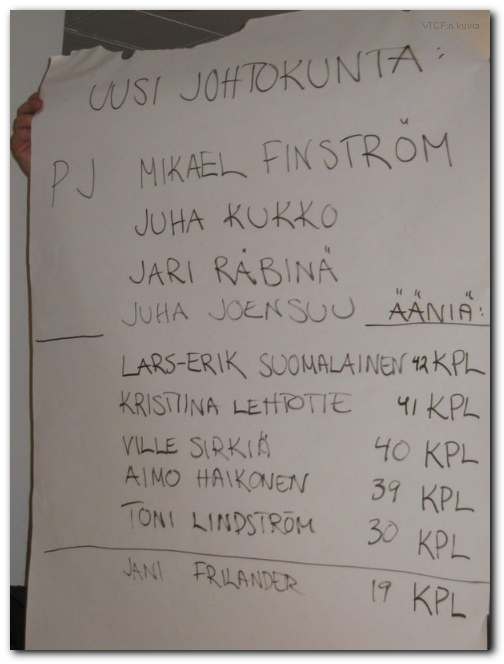 VTCF:n kuvia
UUSI JOHTOKUNTA:
PJ MIKAEL FINSTRÖM
JUHA KUKKO
JARI RÅBINÄ
JUHA JOENSUU ÄÄNIÄ:
LARS-ERIK SUOMALAINEN 42 KPL
KRISTIINA LEHTOTIE 41 KPL
VILLE SIRKIÄ 40 KPL
AIMO HAIKONEN 39 KPL
TONI LINDSTRÖM 30 KPL
JANI FRILANDER 19 KPL